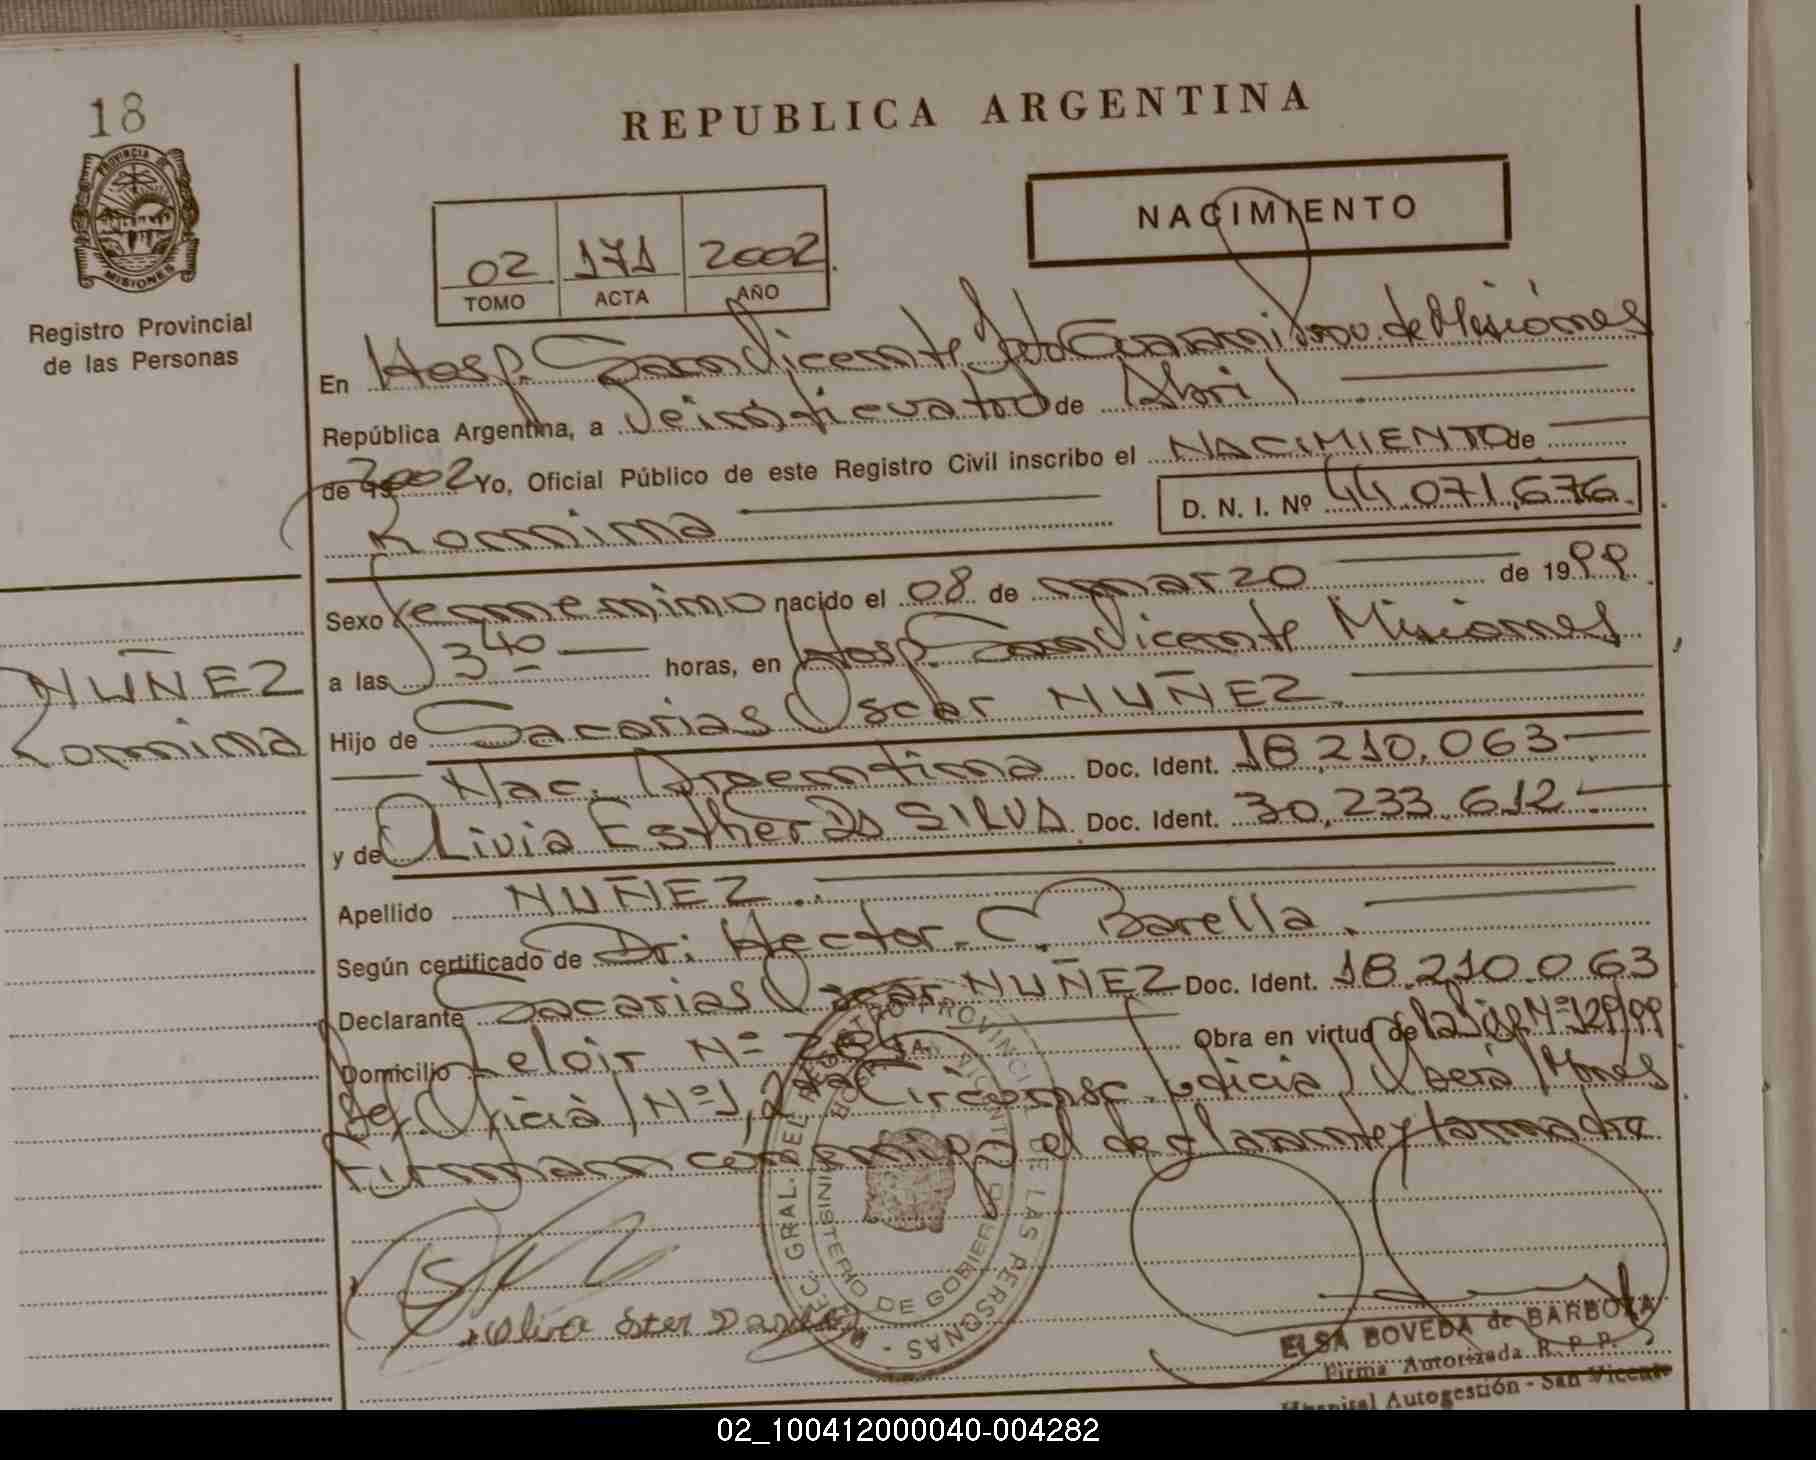 18
PROVINCIA DE
MISIONES
Registro Provincial
de las Personas
NUÑEZ
Romina
REPUBLICA ARGENTINA
NACIMIENTO
02 171 2002
TOMO ACTA AÑO
En Hosp. San Vicente Dpto Guaraní Prov. de Misiones
República Argentina, a Veinticuatro de Abril
de 19 2002 Yo, Oficial Público de este Registro Civil inscribo el NACIMIENTO de
Romina D. N. I. Nº 44.071.676
Sexo Femenino nacido el 08 de marzo de 1999
a las 3 40 horas, en Hosp. San Vicente Misiones
Hijo de Sacarias Oscar NUÑEZ
Nac. Argentina Doc. Ident. 18.210.063
y de Olivia Esther Da SILVA Doc. Ident. 30.233.612
Apellido NUÑEZ
Según certificado de Dr: Hector C. Barella
Declarante Sacarias Oscar NUÑEZ Doc. Ident. 18.210.063
Domicilio Leloir Nº Obra en virtud de la Nº 129/99
Def. Oficial Nº 1, 2da Circunsc. Judicial Oberá Mnes
Firman conmigo el declarante y la madre
REGISTRO PROVINCIAL DE LAS PERSONAS
MINISTERIO DE GOBIERNO
ELSA BOVEDA de BARBOZA
Firma Autorizada R. P. P.
Hospital Autogestión - San Vicente
02_100412000040-004282